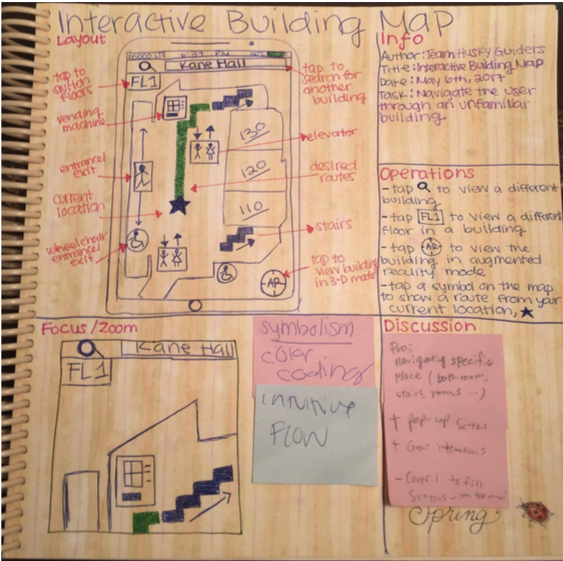 Interactive Building Map
Layout
6:33 PM
Kane Hall
FL1
tap to
floors
vending
machine
entrance/
exit
current
location
wheelchair
entrance/
exit
130
120
110
AR
tap to
search for
another
building
elevator
desired
routes
stairs
tap to
view building
in 3-D mode
Info
Author: Team Husky Guiders
Title: Interactive Building Map
Date: May 6th, 2017
Task: Navigate the user
through an unfamiliar
building.
Operations
-tap to view a different
building
-tap FL1 to view a different
floor in a building.
-tap AR to view the
building in augmented
reality mode
-tap a symbol on the map
to show a route from your
current location,
Focus/Zoom
Kane Hall
FL1
symbolism
color
coding
intuitive
FLOW
Discussion
Pro:
navigating specific
place (bathroom,
stairs, rooms ...)
+ pop-up screens
+
- Careful to fill
screens with
Spring